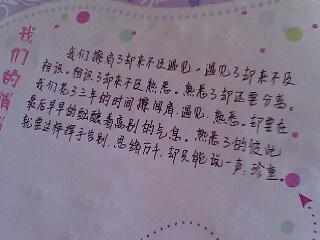 我们的消
我们擦肩了却来不及遇见，遇见了却来不及
相识。相识了却来不及熟悉。熟悉了却还要分离。
我们花了三年的时间擦间肩、遇见、熟悉。却要在
最后早早的酝酿着离别的气息。熟悉了的彼此
就要这样挥手告别，思绪万千，却只能说一声：珍重。